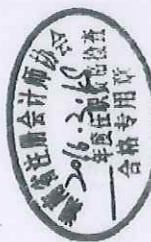 湖南省注册会计师协会
2016.2.18
年度任职资格检查
合格专用章